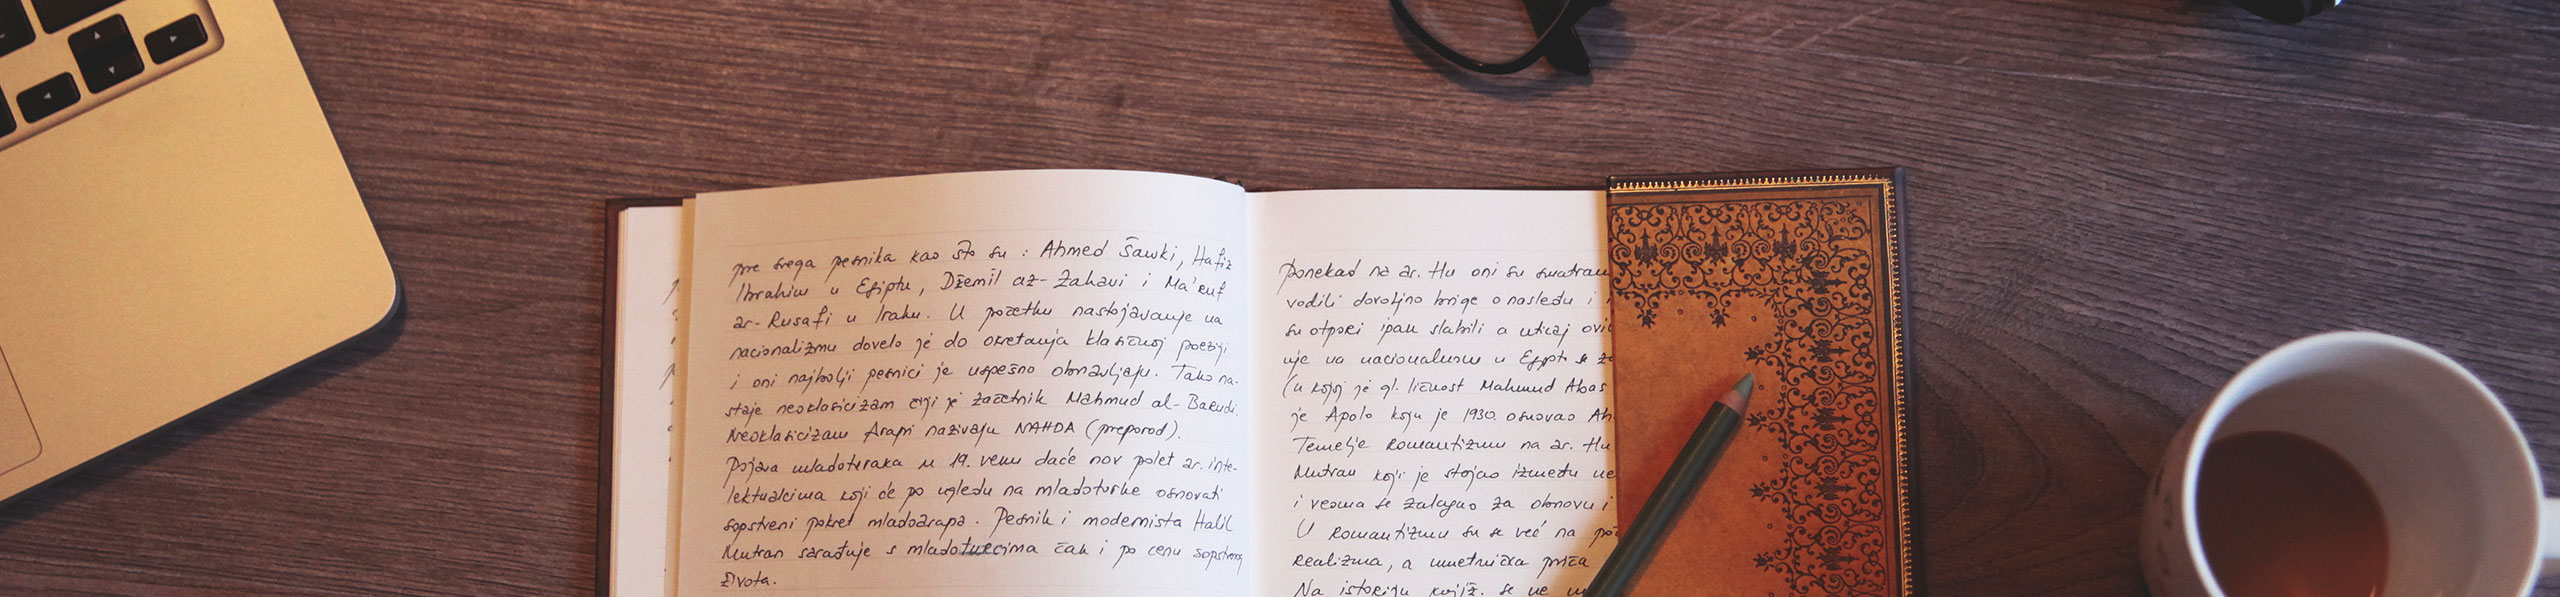 pre svega pesnika kao što su : Ahmed Šawki, Hafiz
Ibrahim u Egiptu, Džemil az-Zahavi i Ma'ruf
ar-Rusafi u Iraku. U početku nastojavanje na
nacionalizmu dovelo je do okretanja klasičnoj poeziji
i oni najbolji pesnici je uspešno obnavljaju. Tako na-
staje neoklasicizam čiji je začetnik Mahmud al-Barudi.
Neoklasicizam Arapi nazivaju NAHDA (preporod).
Pojava mladoturaka u 19. veku daće nov polet ar. inte-
lektualcima koji će po ugledu na mladoturke osnovati
sopstveni pokret mladoarapa. Pesnik i modernista Halil
Mutran sarađuje s mladoturcima čak i po cenu sopstvenog
života.
Ponekad na ar. Hu oni su smatran
vodili dovoljno brige o nasleđu i
su otpori ipak slabili a uticaj ovih
nije na nacionalizmu u Egiptu se
(u kojoj je gl. ličnost Mahmud Abas
je Apolo koju je 1930. osnovao Ah
Temelje romantizmu na ar. Hu
Mutran koji je stojao između ne
i veoma se zalagao za obnovu i
U romantizmu su se već na po
realizma, a umetnička priča
Na istoriju knjiž. se ne